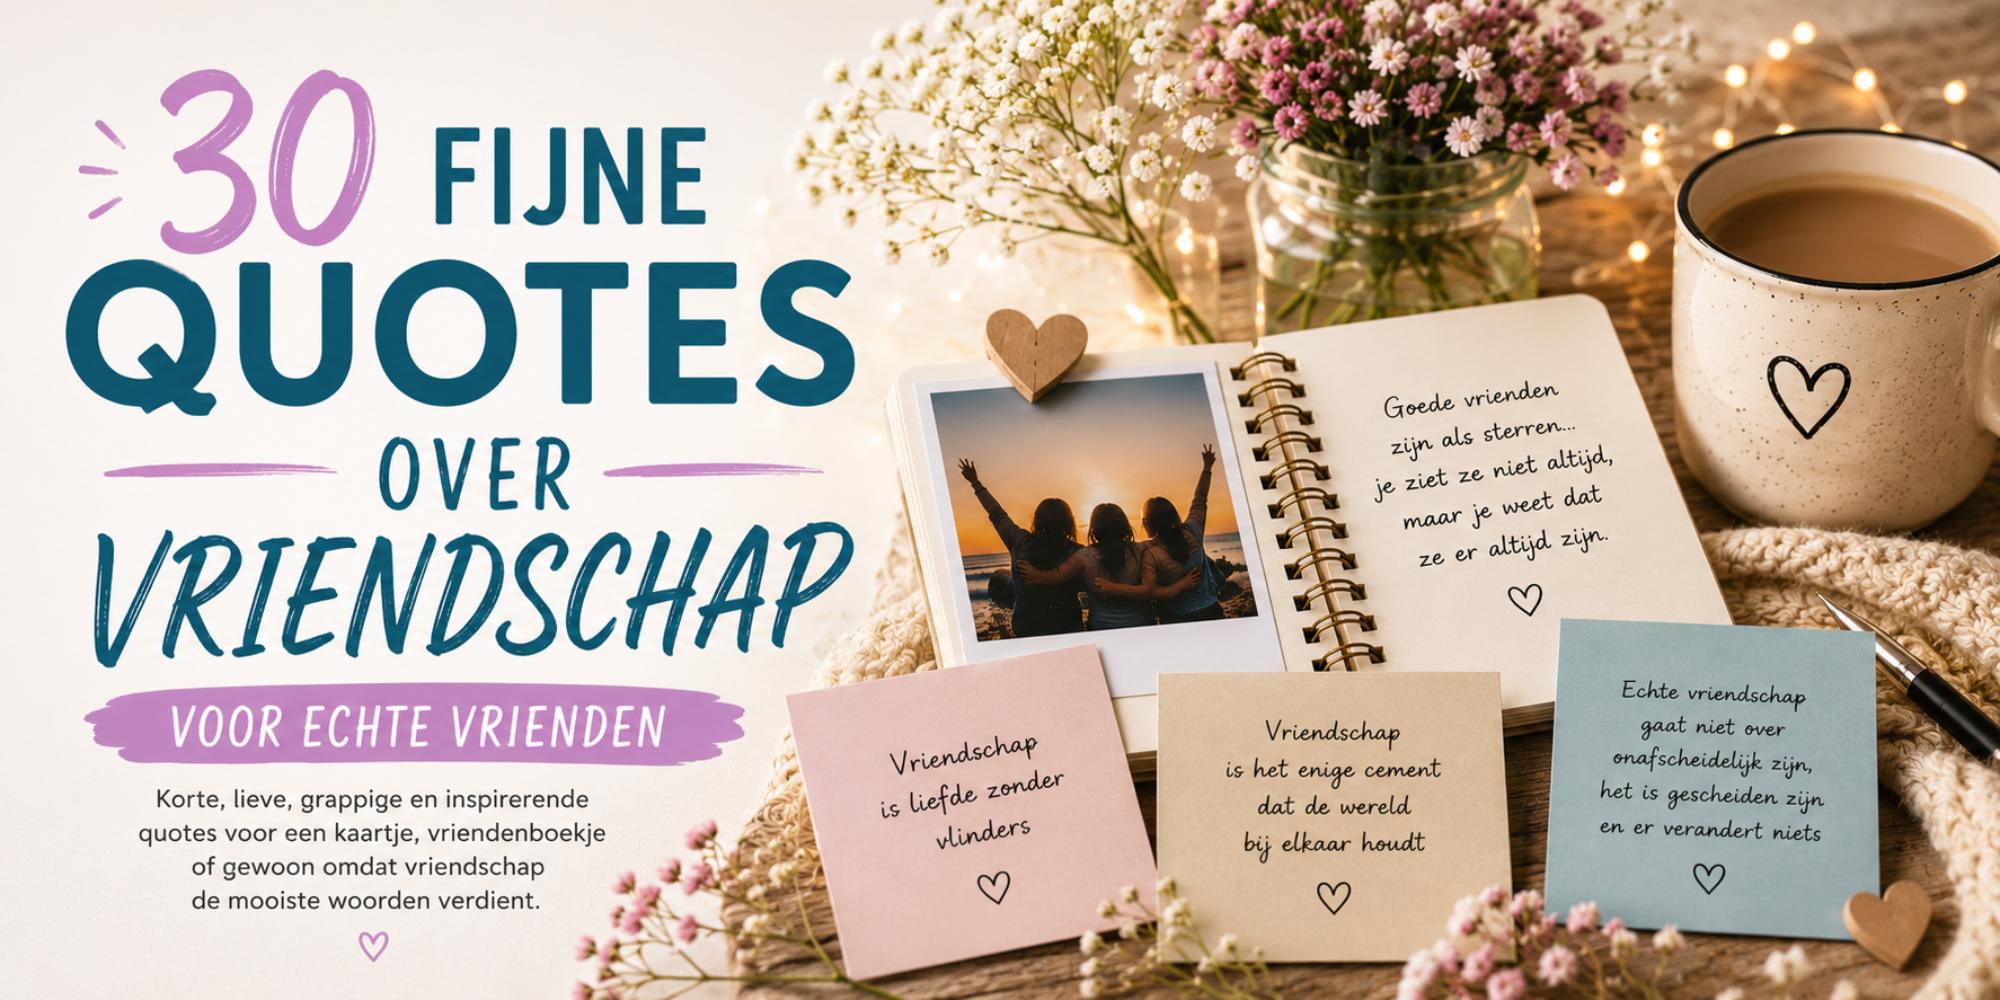 30 FIJNE
QUOTES
OVER
VRIENDSCHAP
VOOR ECHTE VRIENDEN
Korte, lieve, grappige en inspirerende
quotes voor een kaartje, vriendenboekje
of gewoon omdat vriendschap
de mooiste woorden verdient.
Goede vrienden
zijn als sterren...
je ziet ze niet altijd,
maar je weet dat
ze er altijd zijn.
Vriendschap
is liefde zonder
vlinders
Vriendschap
is het enige cement
dat de wereld
bij elkaar houdt
Echte vriendschap
gaat niet over
onafscheidelijk zijn,
het is gescheiden zijn
en er verandert niets